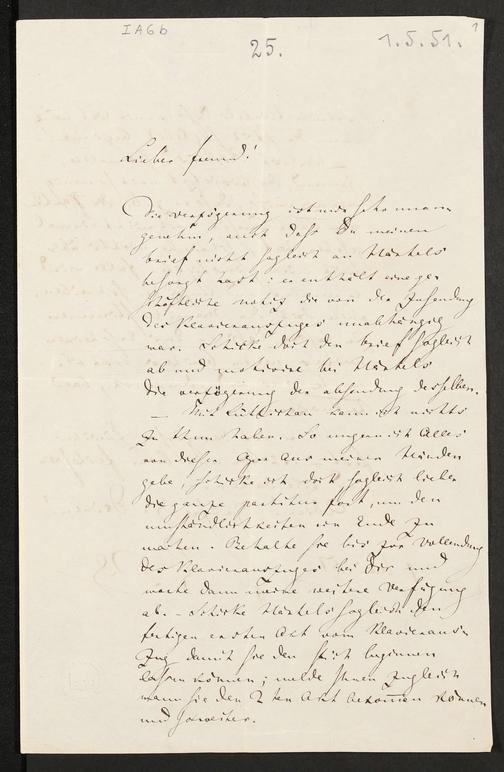 IA6b
25.
1.5.51.
1
Lieber Freund!
Die verzögerung ist mir sehr unan
genehm, auch dass Du meinen
brief nicht sogleich an Härtels
besorgt hast: er enthält eine ge
schäftliche notiz die von der Zusendung
des Klavierauszuges unabhängig
war. Schicke doch den brief sogleich
ab und motivire bei Härtels
die verzögerung der absendung desselben.
— Mit lüttichau kann ich nichts
zu thun haben. So ungern ich Alles
von dieser Oper aus meinen Händen
gebe, schicke ich doch sogleich lieber
die ganze partitur fort, um den
umständlichkeiten ein Ende zu
machen. Behalte sie bis zur vollendung
des Klavierauszuges bei Dir und
warte dann meine weitere verfügung
ab. – Schicke Härtels sogleich den
fertigen ersten Akt vom Klavieraus-
zug damit sie den stich beginnen
lassen können; melde Ihnen zugleich
wann sie den 2ten Akt bekommen können
und soweiter.